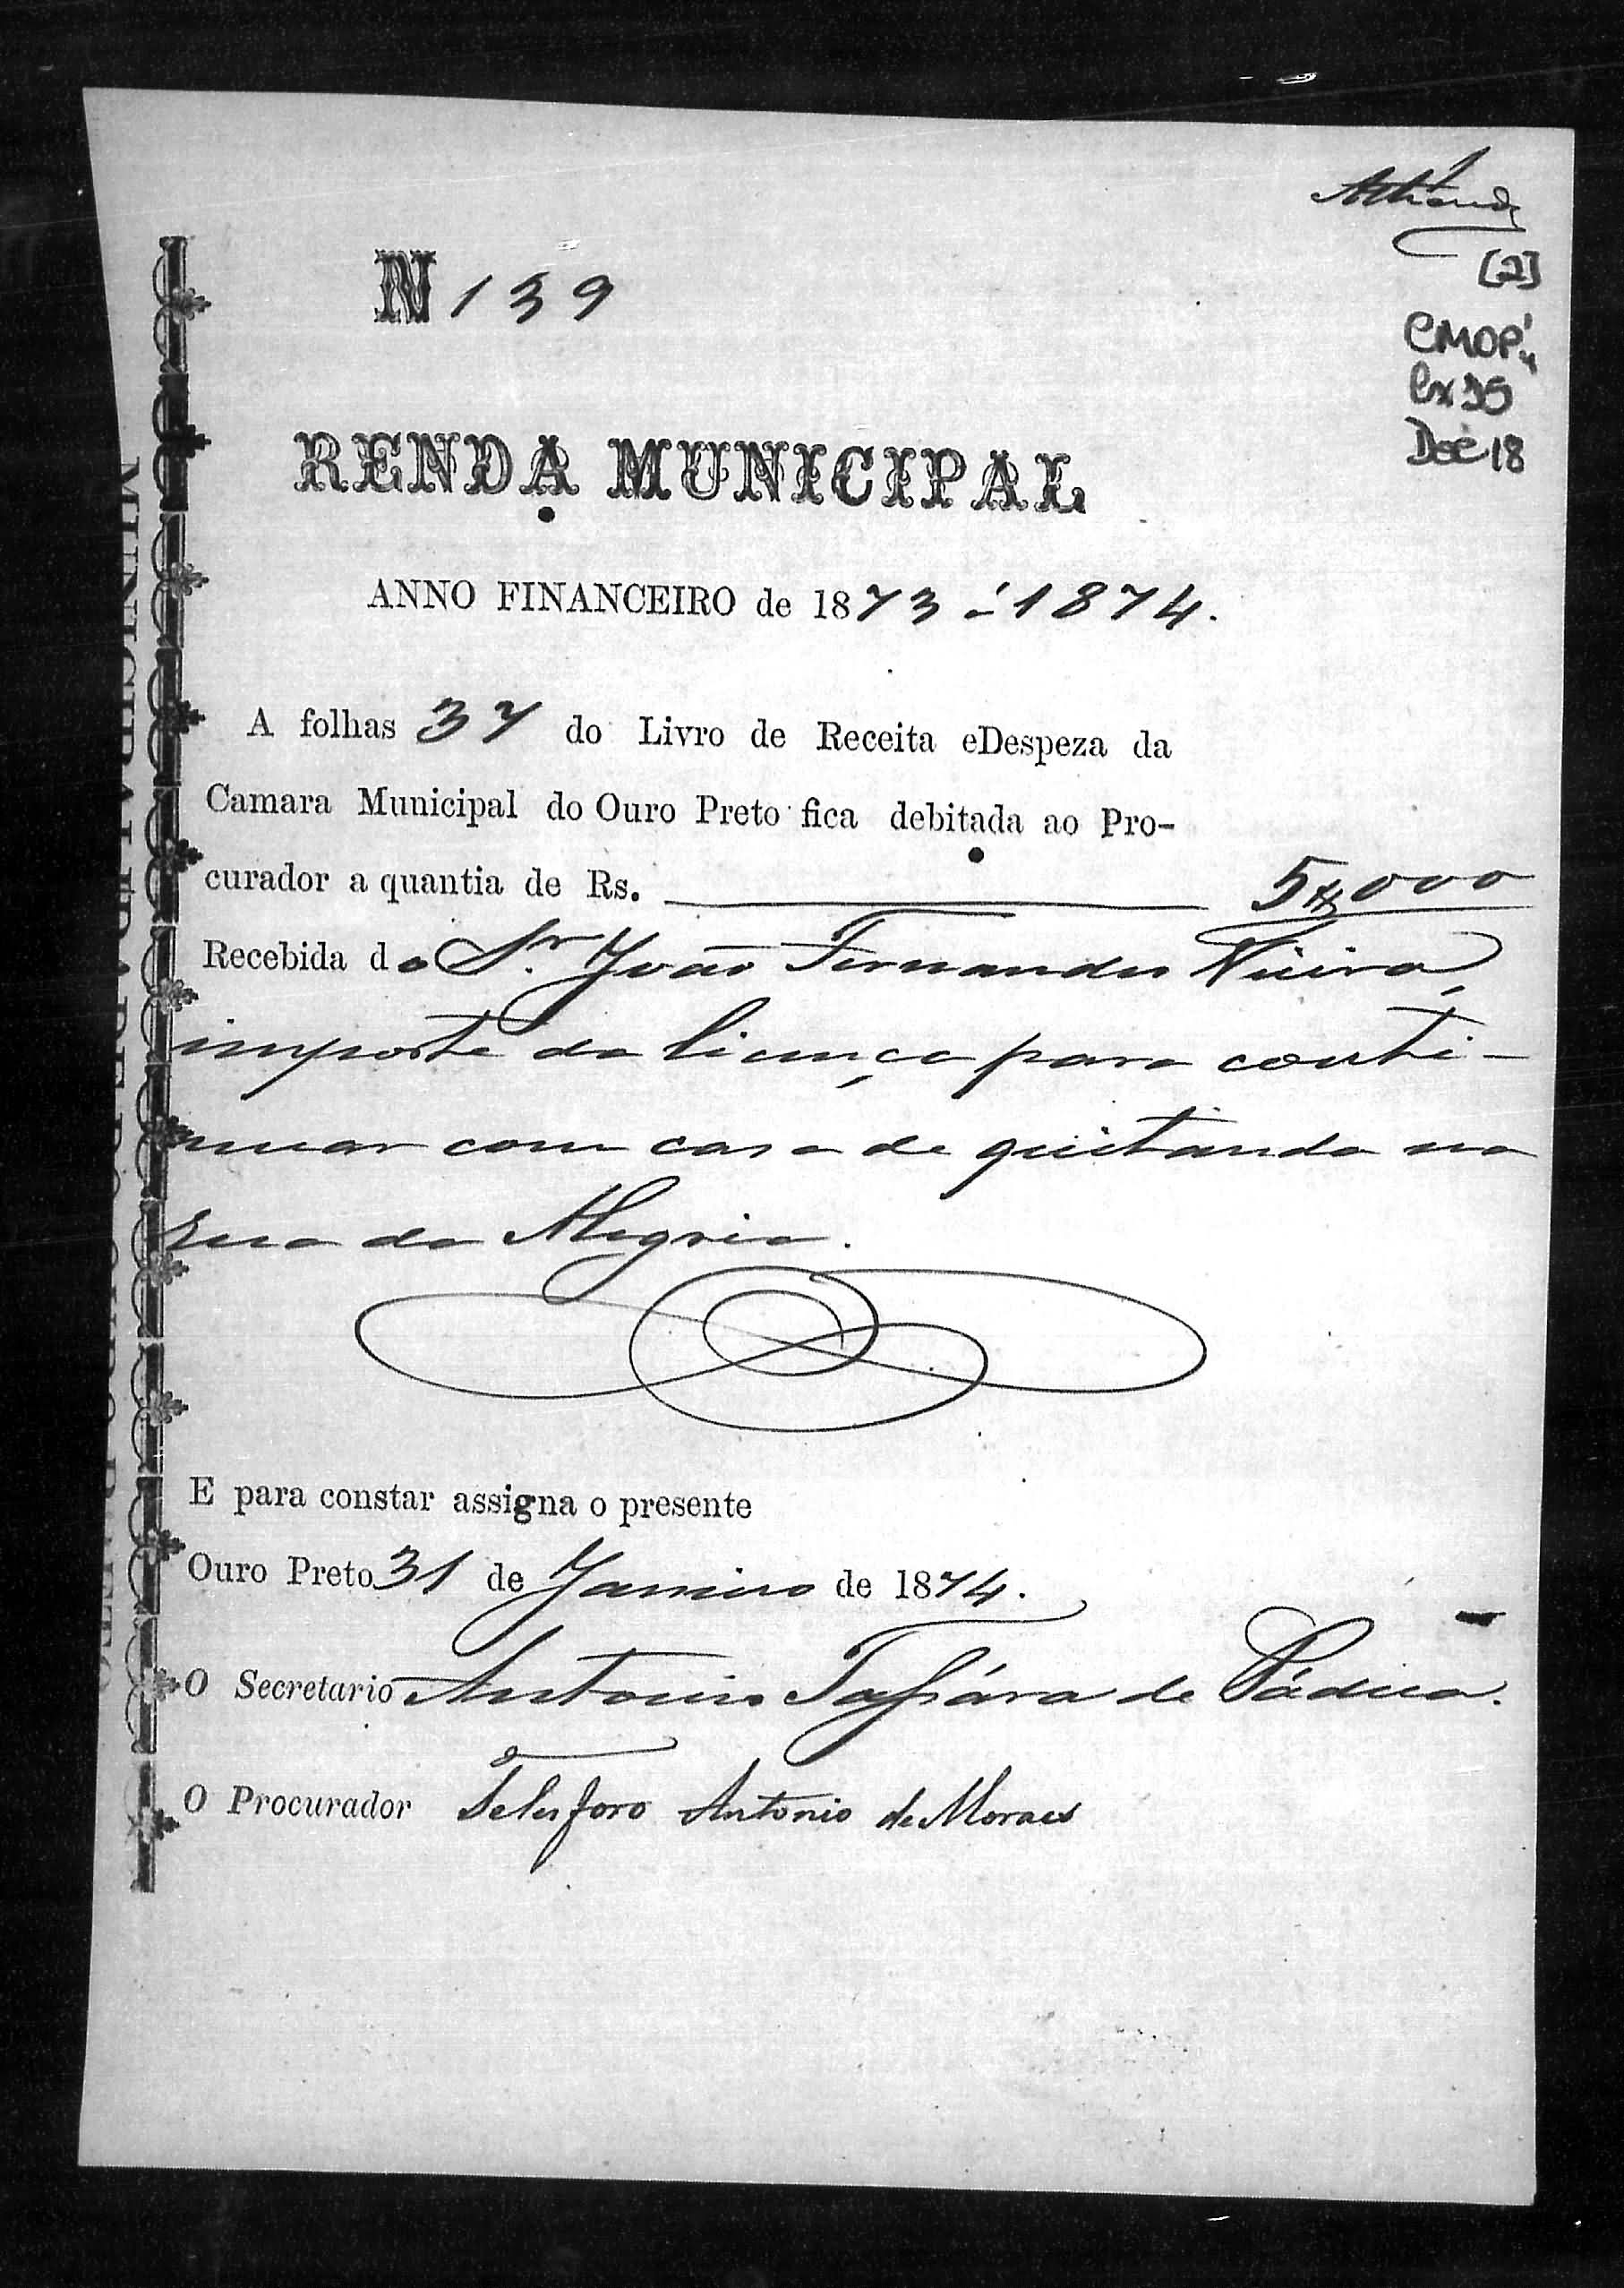 [2]
CMOP
Cx 95
Doc 18
N 139
RENDA MUNICIPAL
ANNO FINANCEIRO de 1873-1874.
A folhas 37 do Livro de Receita eDespeza da
Camara Municipal do Ouro Preto fica debitada ao Pro-
curador a quantia de Rs. 5$000
Recebida do Sr. João Fernandes Vieira,
importe da licença para conti-
nuar com casa de quitanda na
rua da Alegria.
E para constar assigna o presente
Ouro Preto 31 de Janeiro de 1874.
O Secretario Antonio Tassára de Pádua.
O Procurador Telesforo Antonio de Moraes
MUNICIPALIDADE DO OURO PRETO